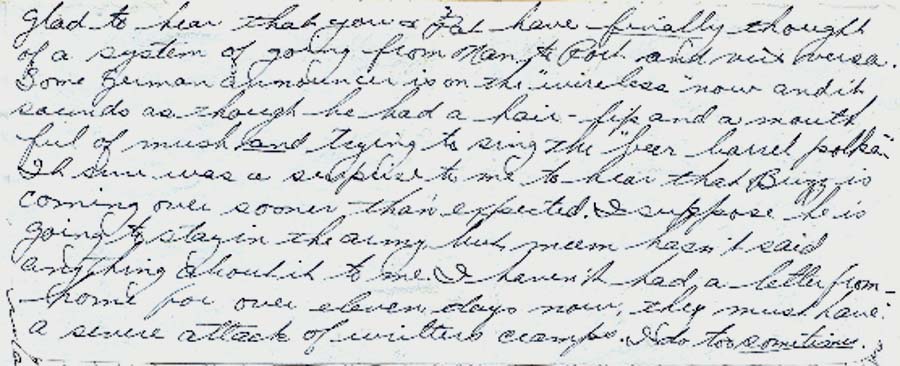 Glad to hear that you & Pat have finally thought
of a system of going from Nan to Port and vice versa.
Some German announcer is on the "wireless" now and it
sounds as though he had a hair-lip and a mouth
ful of mush and trying to sing the "beer barrel polka".
It sure was a suprise to me to hear that Buzz is
coming over sooner than expected. I suppose he is
going to stay in the army but mum hasn't said
anything about it to me. I haven't had a letter from
home for over eleven days now, they must have
a severe attack of writers cramps. I do too sometimes.